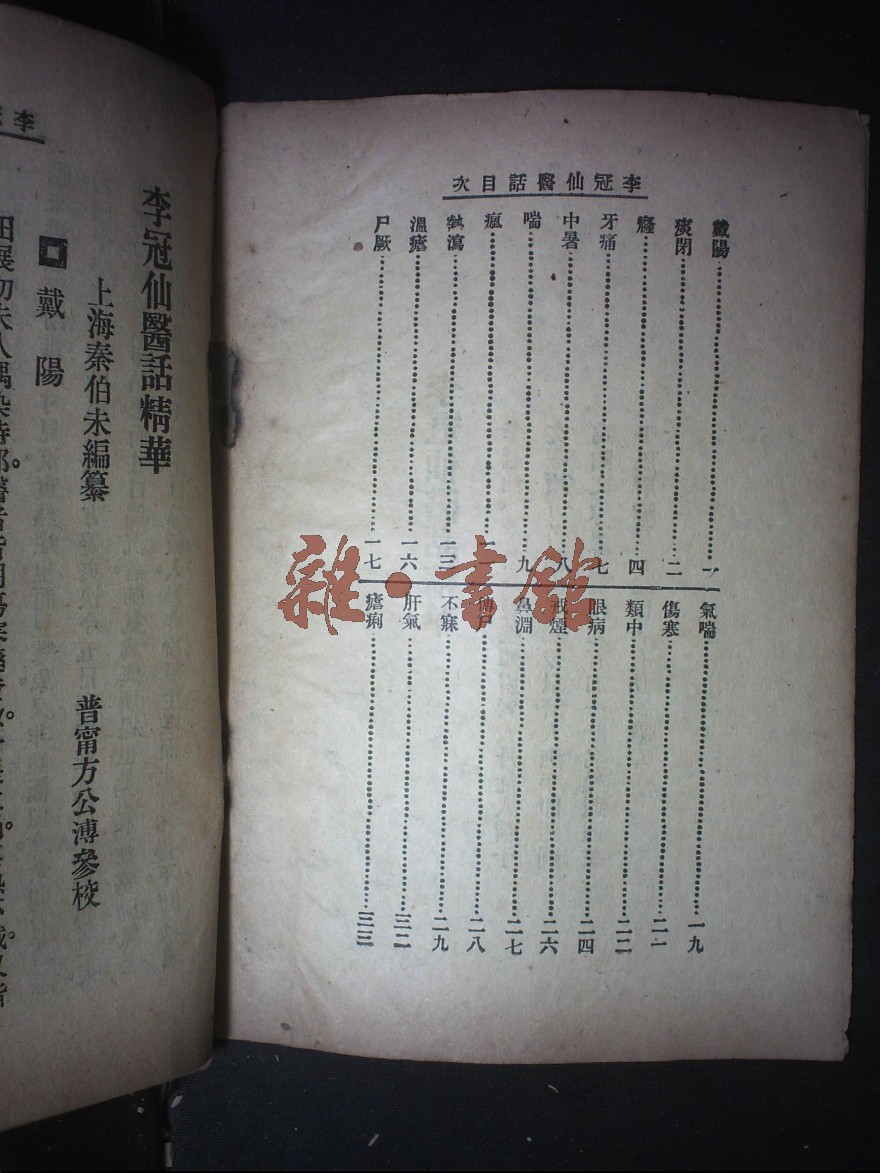 李冠仙醫話目次
戴陽…一
痰閉…二
癃…四
牙痛…七
中暑…八
喘…九
瘋
熱瀉…一三
溫瘧…一六
尸厥…一七
氣喘…一九
傷寒…二一
類中…二二
眼病…二四
戒煙…二六
鼻淵…二七
傳尸…二八
不寐…二九
肝氣…三二
瘧痢…三三
李冠仙醫話精華
上海秦伯未編纂
普甯方公溥參校
戴陽
雜·書館